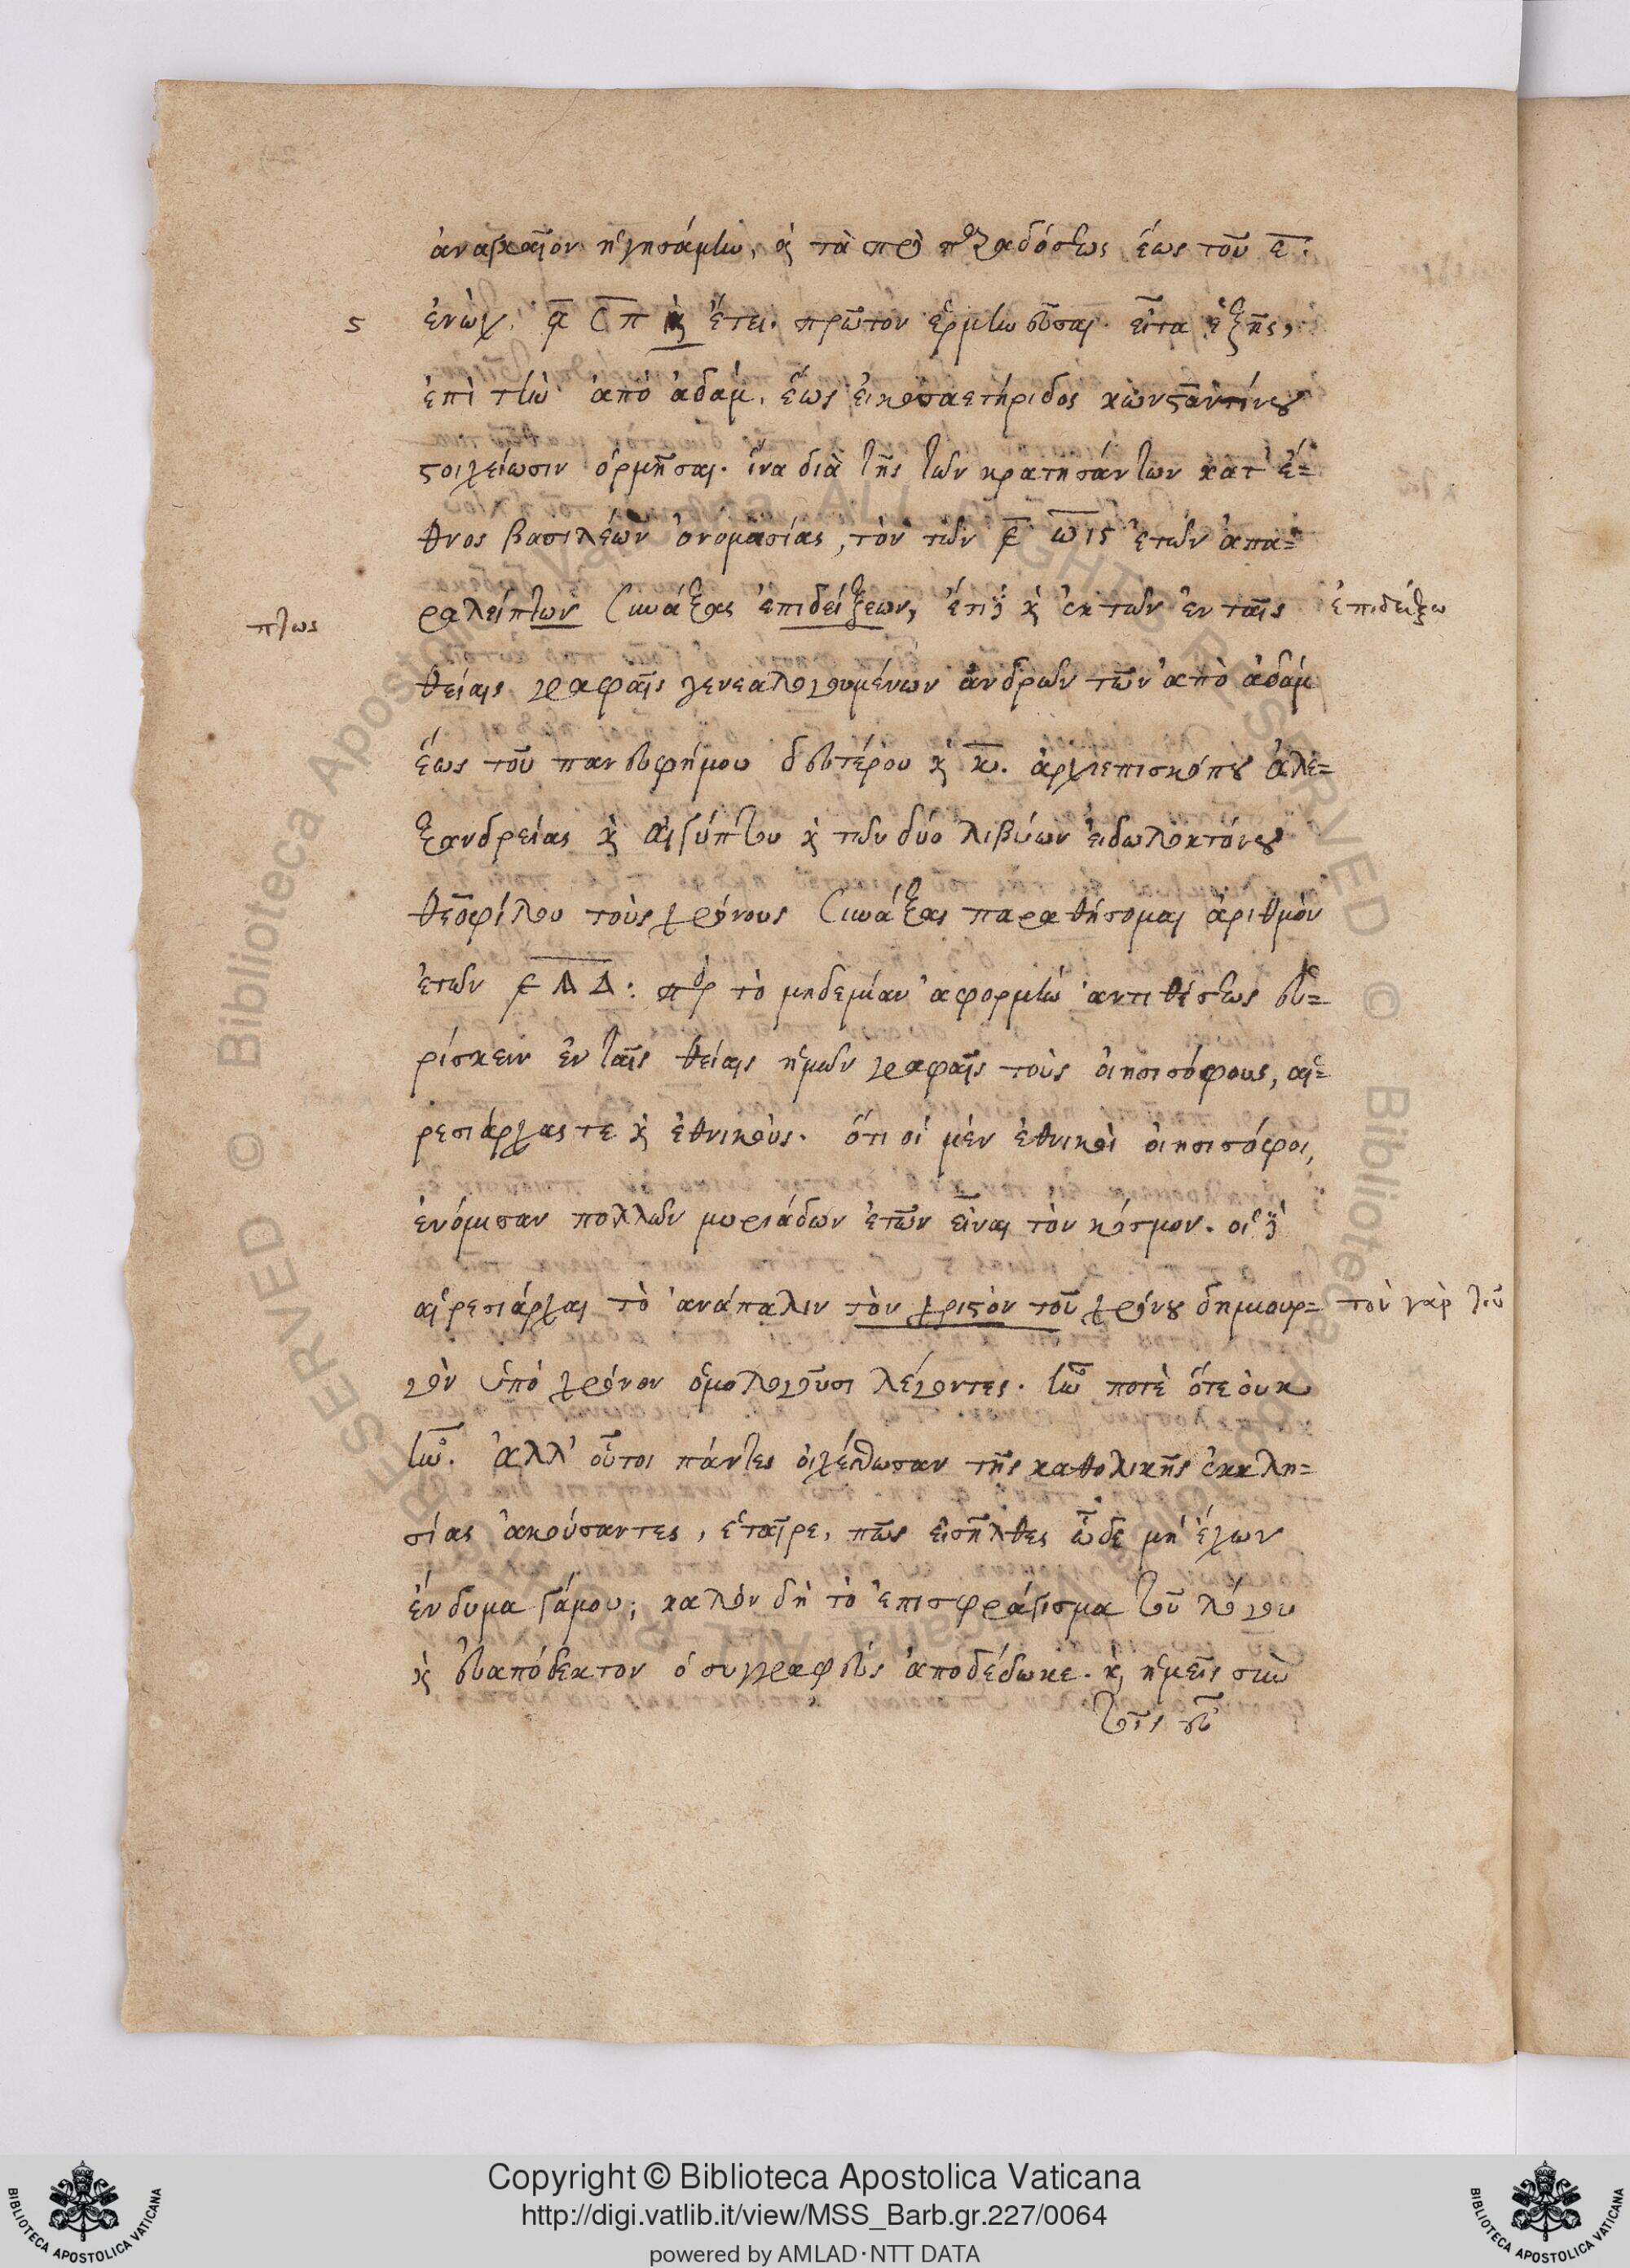 ἀναγκαῖον ἡγησάμην, ἐκ τὰ πρὸ παραδόσεως ἕως τοῦ ε̅.
ϛ ἐνὼχ. α̅ C̅π̅ ϗ ἔτει. πρῶτον ἑρμηνεῦσαι. εἶτα ἑξῆς,
ἐπὶ τὴν ἀπὸ ἀδάμ, ἕως εἰκοσαετηρίδος κωνσταντίνου
στοιχείωσιν ὁρμῆσαι. ἵνα διὰ τῆς τῶν κρατησάντων κατ' ἔ=
θνος βασιλέων ὀνομασίας, τὸν τῶν ͵ε̅ ω̅ι̅ϛ ἐτῶν ἀπα=
πτως ραλείπτων συνάξας ἐπιδείξεων, ἔτι δὲ ϗ ἐκ τῶν ἐν ταῖς ἐπιδείξω
θείαις γραφαῖς γενεαλογουμένων ἀνδρῶν τῶν ἀπὸ ἀδάμ
ἕως τοῦ πανευφήμου δευτέρου ϗ κ̅. ἀρχιεπισκόπου ἀλε=
ξανδρείας ϗ αἰγύπτου ϗ τῶν δύο λιβύων εἰδωλοκτόνου
θεοφίλου τοὺς χρόνους συνάξας παραθήσομαι ἀριθμὸν
ἐτῶν ͵ε Λ Δ: πρὸς τὸ μηδεμίαν ἀφορμὴν ἀντιθέσεως εὑ=
ρίσκειν ἐν ταῖς θείαις ἡμῶν γραφαῖς τοὺς οἰησισόφους, αἱ=
ρεσιάρχας τε ϗ ἐθνικούς. ὅτι οἱ μὲν ἐθνικοὶ οἰησισόφοι,
ἐνόμισαν πολλῶν μυριάδων ἐτῶν εἶναι τὸν κόσμον. οἱ δὲ
αἱρεσιάρχαι τὸ ἀνάπαλιν τὸν χριστὸν τοῦ χρόνου δημιουρ= τὸν γὰρ τοῦ
γὸν ὑπὸ χρόνον ὁμολογοῦσι λέγοντες. ἦν ποτὲ ὅτε οὐκ
ἦν. ἀλλ' οὗτοι πάντες οἰχέσθωσαν τῆς καθολικῆς ἐκκλη=
σίας ἀκούσαντες, ἑταῖρε, πῶς εἰσῆλθες ὧδε μὴ ἔχων
ἔνδυμα γάμου; καλὸν δὴ τὸ ἐπισφράγισμα τοῦ λόγου
ϗ εὐαπόδεκτον ὁ συγγραφεὺς ἀποδέδωκε. ϗ ἡμεῖς σὺν
τοῖς εὐ
Copyright © Biblioteca Apostolica Vaticana
http://digi.vatlib.it/view/MSS_Barb.gr.227/0064
powered by AMLAD·NTT DATA